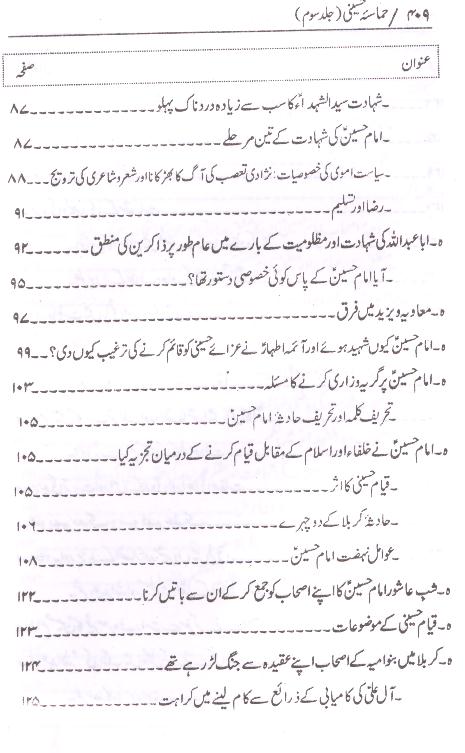 ۴۰۹ / حماسۂ حسینی (جلد سوم)
عنوان صفحہ
۔شہادت سید الشہداءؑ کا سب سے زیادہ دردناک پہلو ۸۷
۔امام حسینؑ کی شہادت کے تین مرحلے ۸۷
۔سیاست اموی کی خصوصیات: نژادی تعصب کی آگ کا بھڑکانا اور شعر و شاعری کی ترویج ۸۸
۔رضا اور تسلیم ۹۱
ہ۔اباعبداللہ کی شہادت اور مظلومیت کے بارے میں عام طور پر ذاکرین کی منطق ۹۲
۔آیا امام حسینؑ کے پاس کوئی خصوصی دستور تھا؟ ۹۵
ہ۔معاویہ و یزید میں فرق ۹۷
ہ۔امام حسینؑ کیوں شہید ہوئے اور آئمہ اطہارؑ نے عزائے حسینی کو قائم کرنے کی ترغیب کیوں دی؟ ۹۹
ہ۔امام حسینؑ پر گریہ و زاری کرنے کا مسئلہ ۱۰۳
۔تحریف کلمہ اور تحریف حادثۂ امام حسینؑ ۱۰۵
ہ۔امام حسینؑ نے خلفاء اور اسلام کے مقابل قیام کرنے کے درمیان تجزیہ کیا ۱۰۵
۔قیام حسینی کا اثر ۱۰۵
۔حادثۂ کربلا کے دو چہرے ۱۰۶
۔عوامل نہضت امام حسینؑ ۱۰۸
ہ۔شب عاشور امام حسینؑ کا اپنے اصحاب کو جمع کر کے ان سے باتیں کرنا ۱۲۲
ہ۔قیام حسینی کے موضوعات ۱۲۳
ہ۔کربلا میں بنو امیہ کے اصحاب اپنے عقیدہ سے جنگ لڑ رہے تھے ۱۲۴
۔آل علیؑ کی کامیابی کے ذرائع سے کام لینے میں کراہت ۱۲۵